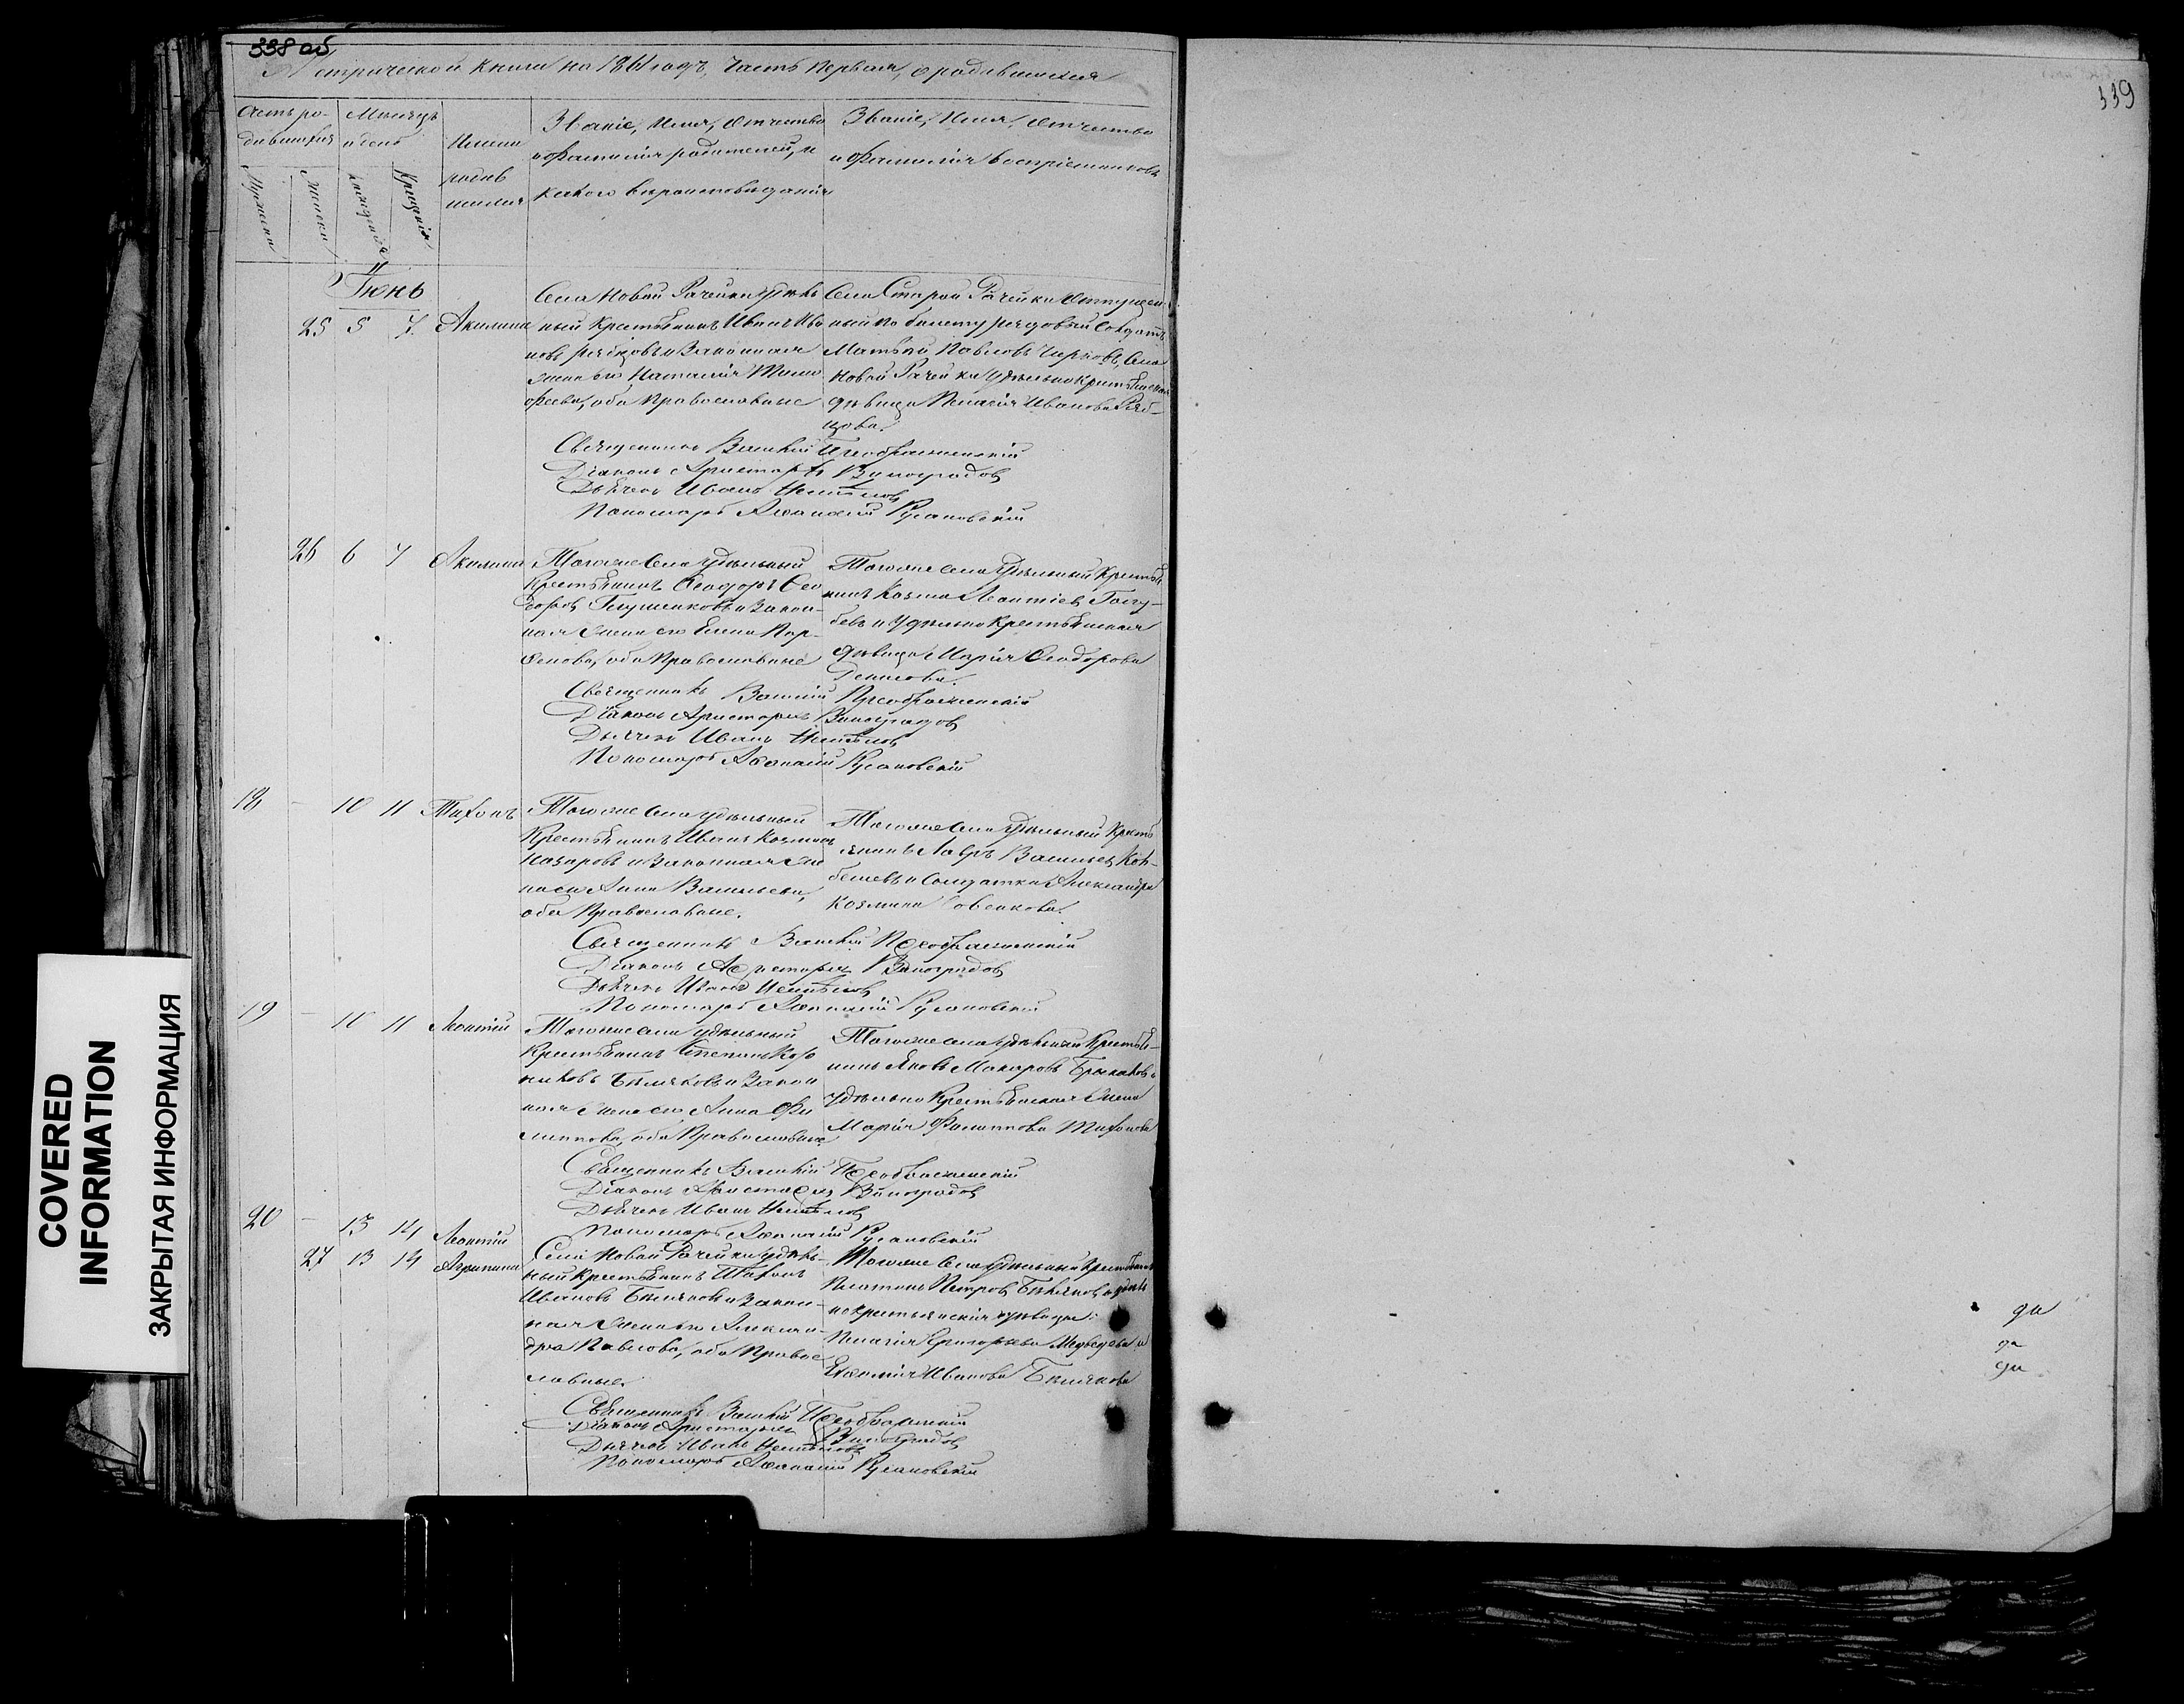 338 об
Метрической книги на 1861 годъ, Часть первая, о родившихся
Счетъ родившихся
Мѣсяцъ и день
Мужеска
Женска
рожденія
Крещенія
Имена родившихся
Званіе, Имя, Отчество
и Фамилія родителей, и
какого вѣроисповѣданія
Званіе, Имя, Отчество
и Фамилія воспріемниковъ
Іюнь
25 5 7. Акилина
Села Новой Рачейки Удѣль
ный Крестьянинъ Иванъ Ива
новъ Рябцовъ и Законная
жена его Наталія Тимо
феева, оба православные
Села Старой Рачейки Отпущен
ный по билету рядовой Солдатъ
Матвѣй Павловъ Чирковъ, Села
Новой Рачейки Удѣльно Крестьянская
дѣвица Пелагія Иванова Ряб-
цова.
Священникъ Василій Преображенскій
Діаконъ Аристархъ Виноградовъ
Дьячекъ Иванъ
Пономарь Афанасій Русановскій
26 6 7 Акилина
Тогоже Села Удѣльный
Крестьянинъ Ѳеодоръ Ѳео
доровъ Глушенковъ и Закон-
ная жена его Елена Пар-
ѳенова, оба Православные
Тогоже Села Удѣльный Крестья
нинъ Козма Леонтіевъ Голу-
бевъ и Удѣльно Крестьянская
дѣвица Марія Ѳеодорова
Денисова.
Священникъ Василій Преображенскій
Діаконъ Аристархъ Виноградовъ
Дьячекъ Иванъ
Пономарь Афанасій Русановскій
18 - 10 11 Тихонъ
Тогоже Села Удѣльный
Крестьянинъ Иванъ Козминъ
Назаровъ и Законная же
на его Анна Васильева,
оба Православные.
Тогоже Села Удѣльный Кресть
янинъ Лавръ Васильевъ
и Солдатка Александра
Козмина
Священникъ Василій Преображенскій
Діаконъ Аристархъ Виноградовъ
Дьячекъ Иванъ
Пономарь Афанасій Русановскій
19 - 10 11 Леонтій
Тогоже Села Удѣльный
Крестьянинъ Степанъ
Бѣляковъ и Закон
ная жена его Анна Фи
липпова, оба Православные
Тогоже Села Удѣльный Крестья-
нинъ Яковъ Макаровъ
Удѣльно Крестьянская жена
Марія Филиппова Тихонова
Священникъ Василій Преображенскій
Діаконъ Аристархъ Виноградовъ
Дьячекъ Иванъ
Пономарь Афанасій Русановскій
20 - 13 14 Леонтій
27 13 14 Агрипина
Села Новой Рачейки Удѣль-
ный Крестьянинъ Тихонъ
Ивановъ Бѣляковъ и Закон-
ная жена его Алексан-
дра Павлова, оба Право
славные.
Тогоже Села Удѣльный Крестьянинъ
Платонъ Петровъ Бѣляковъ и удѣль
но крестьянскія дѣвицы:
Пелагія Григорьева Медведева и
Евфимія Иванова Бѣлякова
Священникъ Василій Преображенскій
Діаконъ Аристархъ Виноградовъ
Дьячекъ Иванъ
Пономарь Афанасій Русановскій
COVERED
INFORMATION
ЗАКРЫТАЯ ИНФОРМАЦИЯ
339
да
да
да